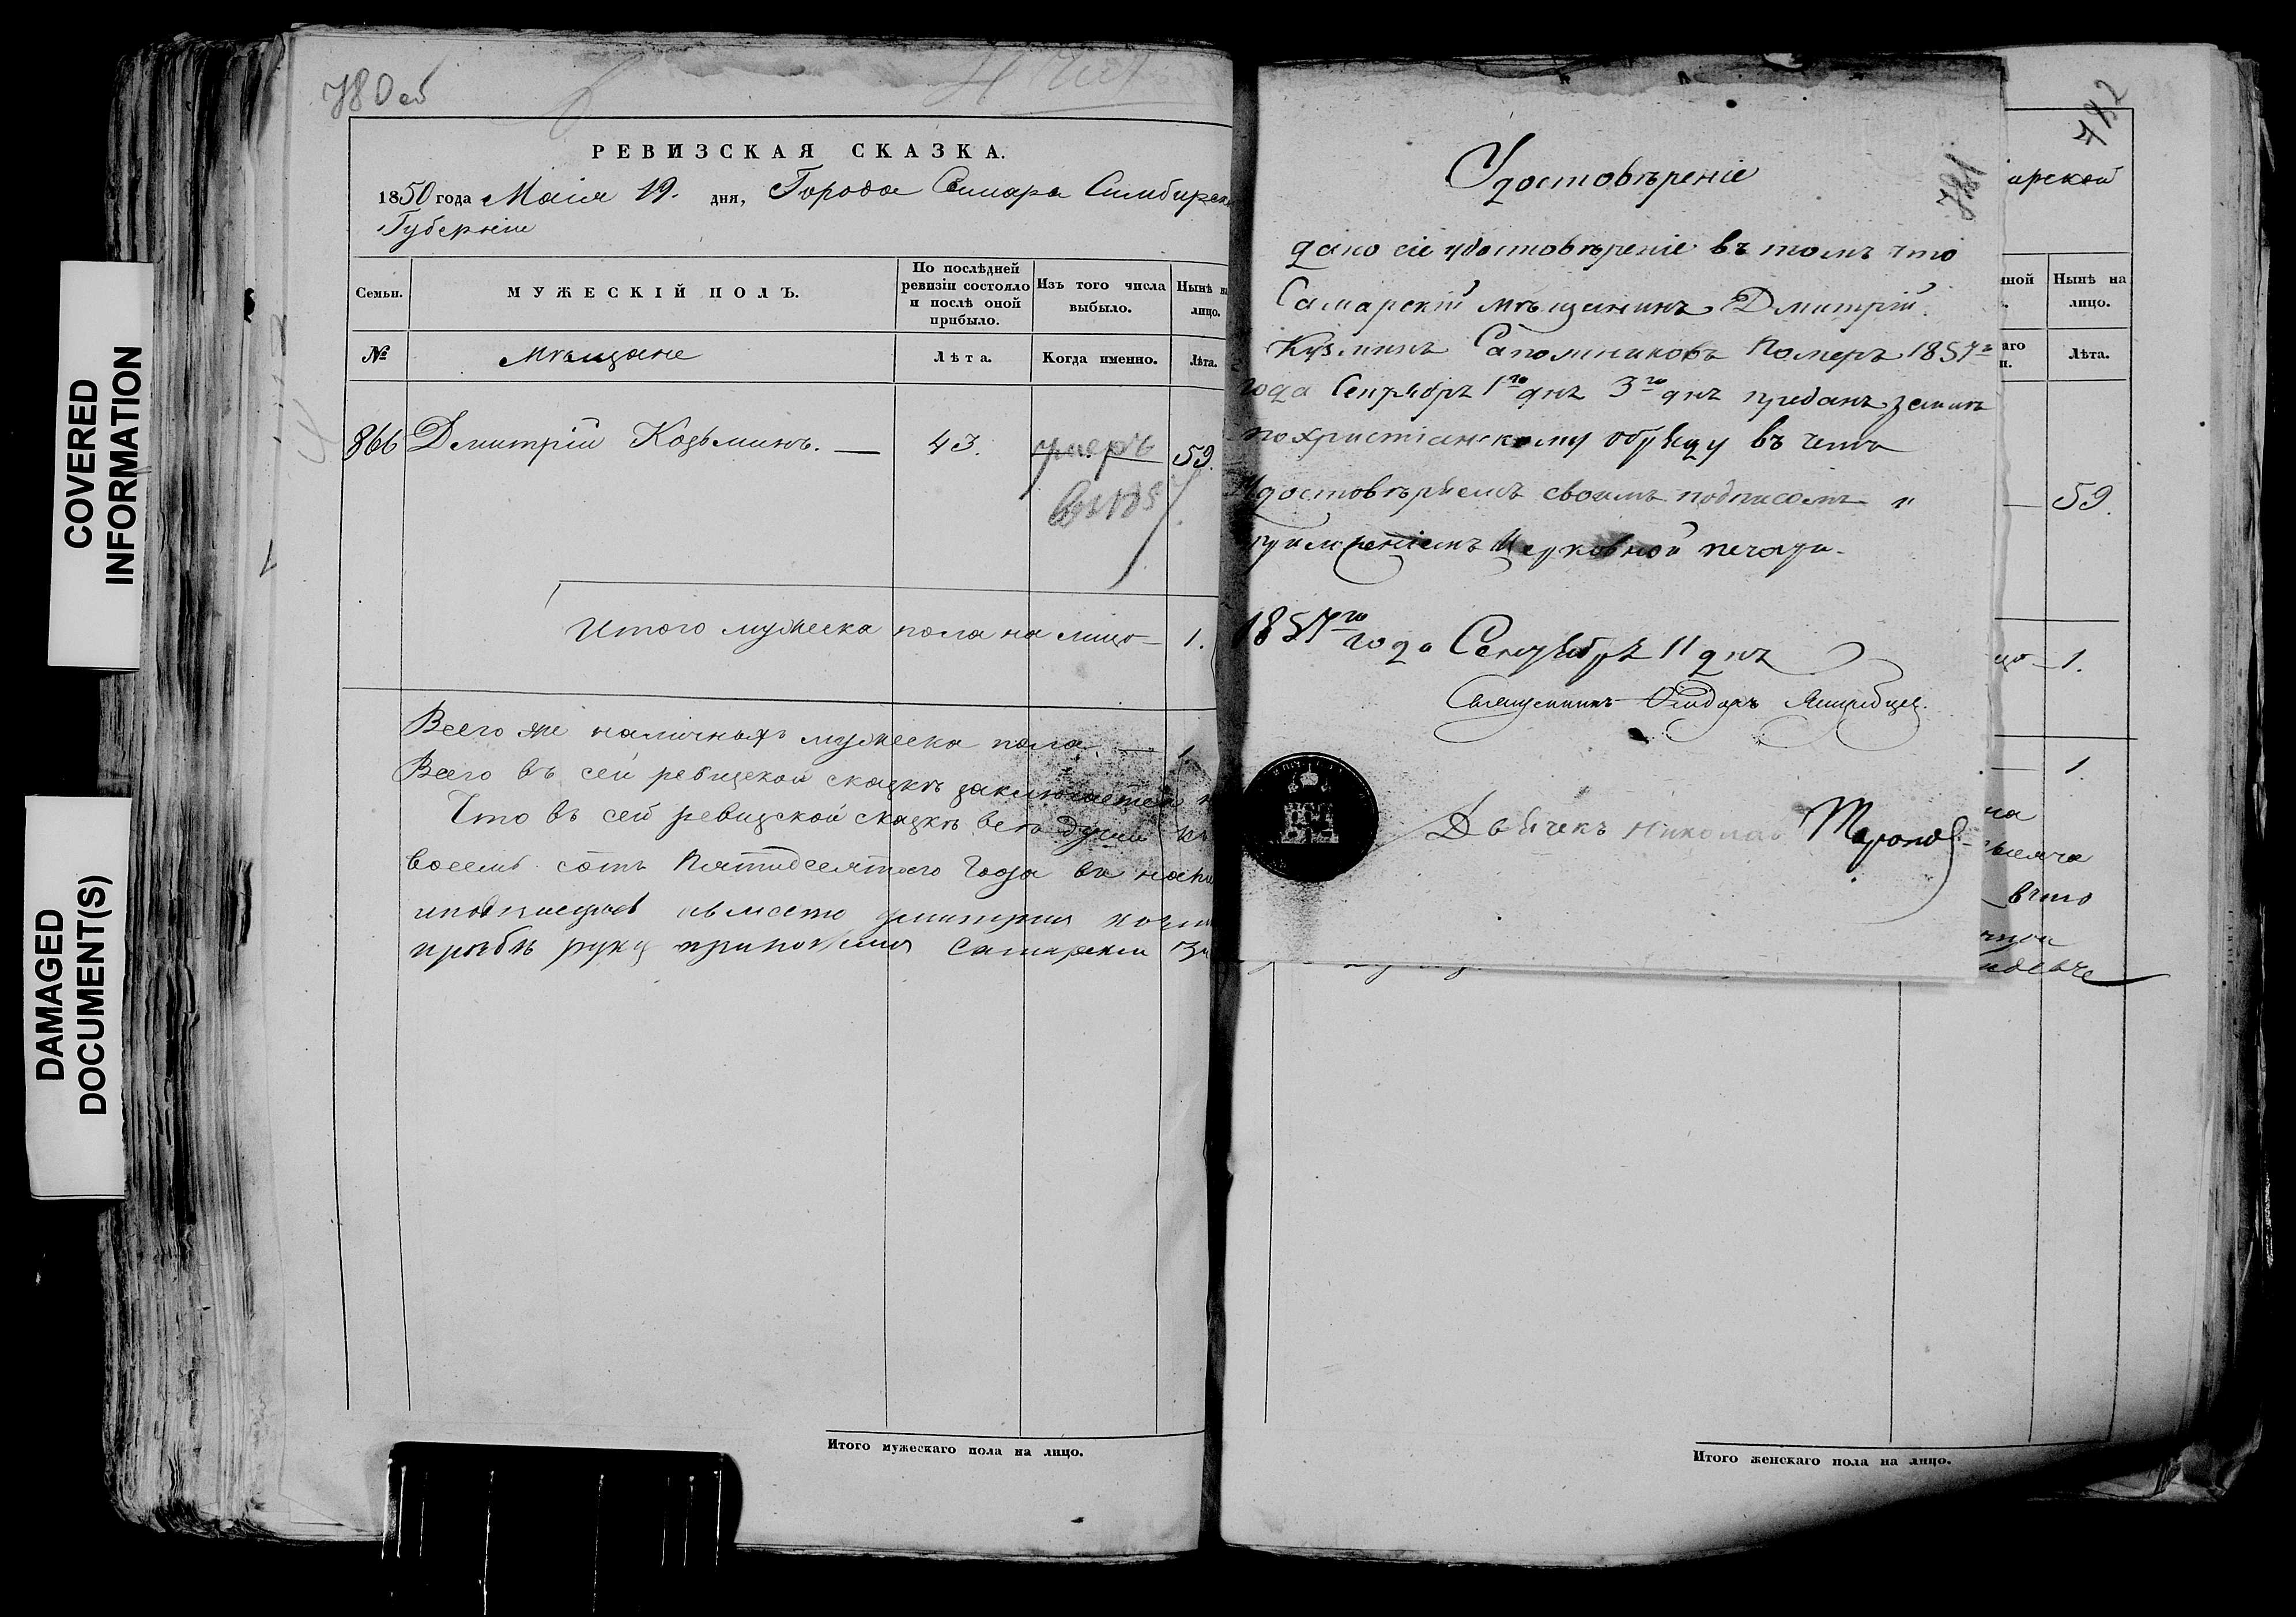 COVERED
INFORMATION
DAMAGED
DOCUMENT(S)
780 об
РЕВИЗСКАЯ СКАЗКА.
1850 года Маія 19. дня, Города Самара Симбирск
Губерніи
Семьи.
МУЖЕСКІЙ ПОЛЪ.
По послѣдней ревизіи состояло и послѣ оной прибыло.
Изъ того числа выбыло.
Нынѣ на лицо.
№
Мѣщане
Лѣта.
Когда именно.
Лѣта.
866 Дмитрій Козьминъ. — 43. умеръ 59.
въ 1857
Итого мужеска пола на лицо — 1.
Всего же наличныхъ мужеска пола — 1
Всего въ сей ревизской сказкѣ заключается
Что въ сей ревизской сказкѣ всѣ души
восемь сотъ Пятидесятого Года
прозбѣ руку приложилъ Самарскій
Итого мужескаго пола на лицо.
781
Удостовѣреніе
дано сіе удостовѣреніе въ томъ что
Самарскій мѣщанинъ Дмитрій
Кузминъ Сапожниковъ Померъ 1857 го
года Сентября 1го дня 3го дня преданъ земли
по христіанскому обряду въ чемъ
Удостовѣряемъ своимъ подписомъ и
приложеніемъ Церковной печати.
1857го года Сентября 11 дня
Священникъ
Дьячекъ Николай
782
арской
ной
Нынѣ на лицо.
аго
Лѣта.
— 59.
1.
— 1.
на
Итого женскаго пола на лицо.